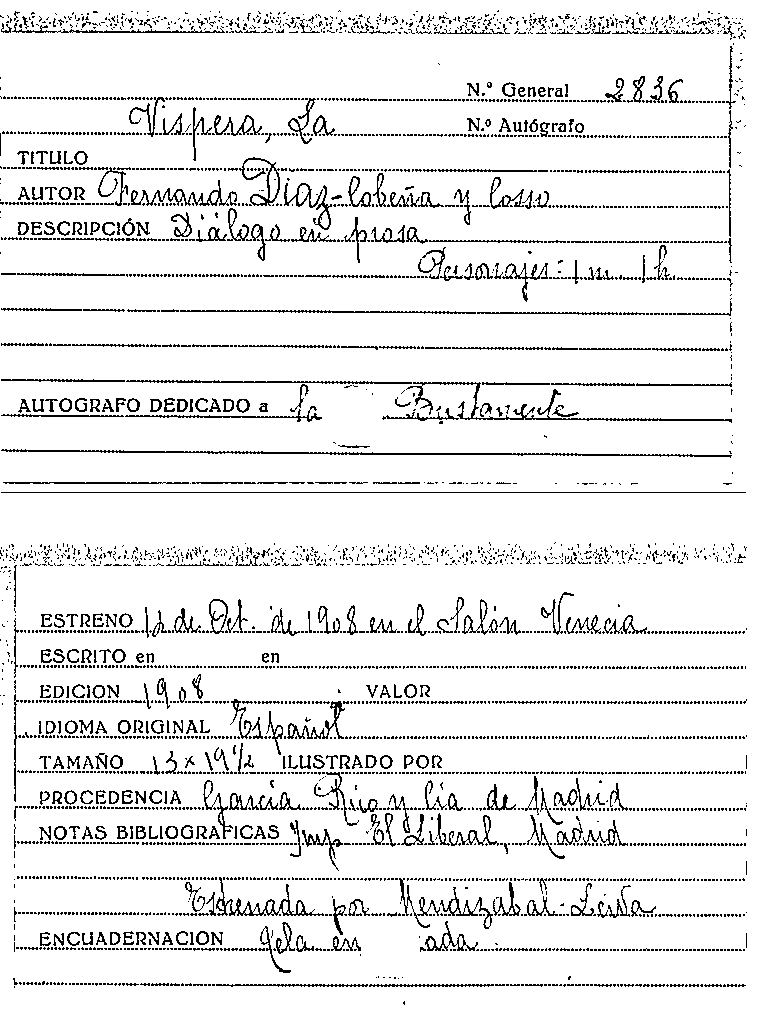 N.º General 2836
Vispera, La N.º Autógrafo
TITULO
AUTOR Fernando Díaz-Cobeña y Cosso
DESCRIPCIÓN Diálogo en prosa
Personajes: 1 m. 1 h.
AUTOGRAFO DEDICADO a la Bustamente
ESTRENO 12 de Oct. de 1908 en el Salón Venecia
ESCRITO en en
EDICION 1908 VALOR
IDIOMA ORIGINAL Español
TAMAÑO 13 x 19 1/2 ILUSTRADO POR
PROCEDENCIA García Rico y Cía de Madrid
NOTAS BIBLIOGRAFICAS Imp El Liberal, Madrid
Estrenada por Mendizabal-Leiva
ENCUADERNACION Tela en ada